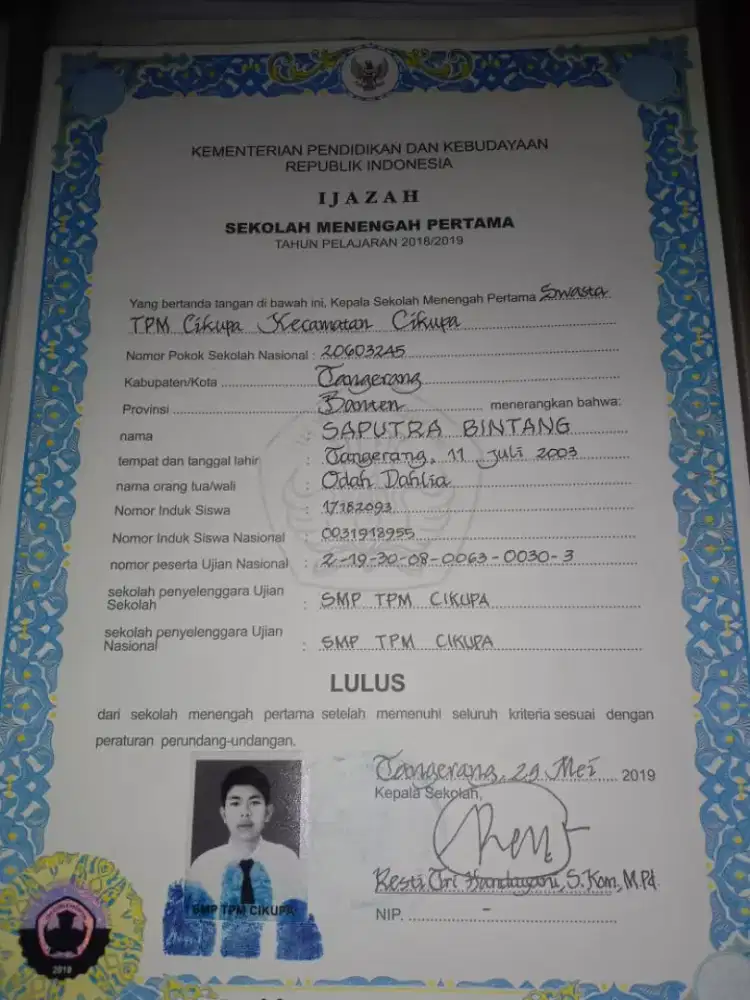 KEMENTERIAN PENDIDIKAN DAN KEBUDAYAAN
REPUBLIK INDONESIA
IJAZAH
SEKOLAH MENENGAH PERTAMA
TAHUN PELAJARAN 2018/2019
Yang bertanda tangan di bawah ini, Kepala Sekolah Menengah Pertama Swasta
TPM Cikupa Kecamatan Cikupa
Nomor Pokok Sekolah Nasional : 20603245
Kabupaten/Kota Tangerang
Provinsi Banten menerangkan bahwa:
nama : SAPUTRA BINTANG
tempat dan tanggal lahir : Tangerang, 11 Juli 2003
nama orang tua/wali : Odah Dahlia
Nomor Induk Siswa : 17182093
Nomor Induk Siswa Nasional : 0031918955
nomor peserta Ujian Nasional : 2-19-30-08-0063-0030-3
sekolah penyelenggara Ujian
Sekolah : SMP TPM CIKUPA
sekolah penyelenggara Ujian
Nasional : SMP TPM CIKUPA
LULUS
dari sekolah menengah pertama setelah memenuhi seluruh kriteria sesuai dengan
peraturan perundang-undangan.
Tangerang, 29 Mei 2019
Kepala Sekolah,
Resti Tri Handayani, S.Kom, M.Pd.
NIP. -
SMP TPM CIKUPA
2019